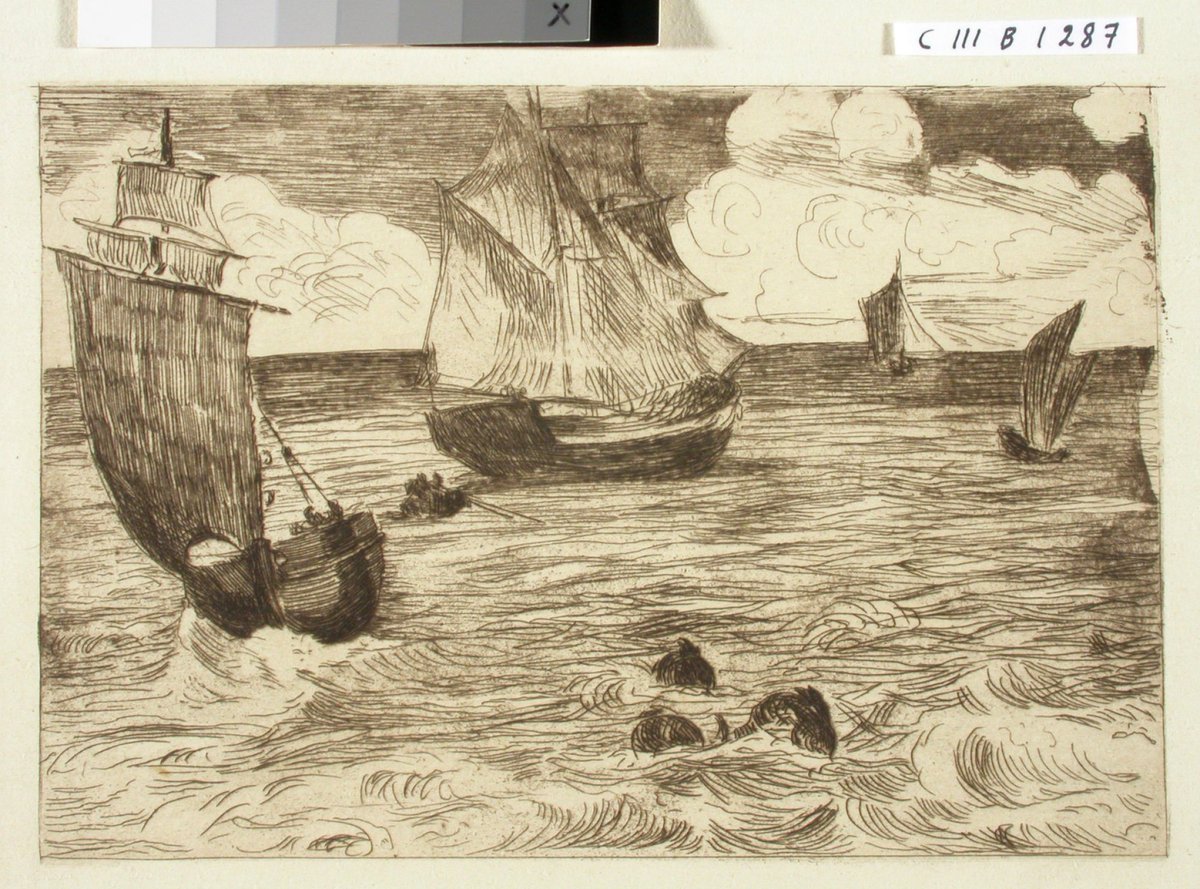 X
C III B 1287